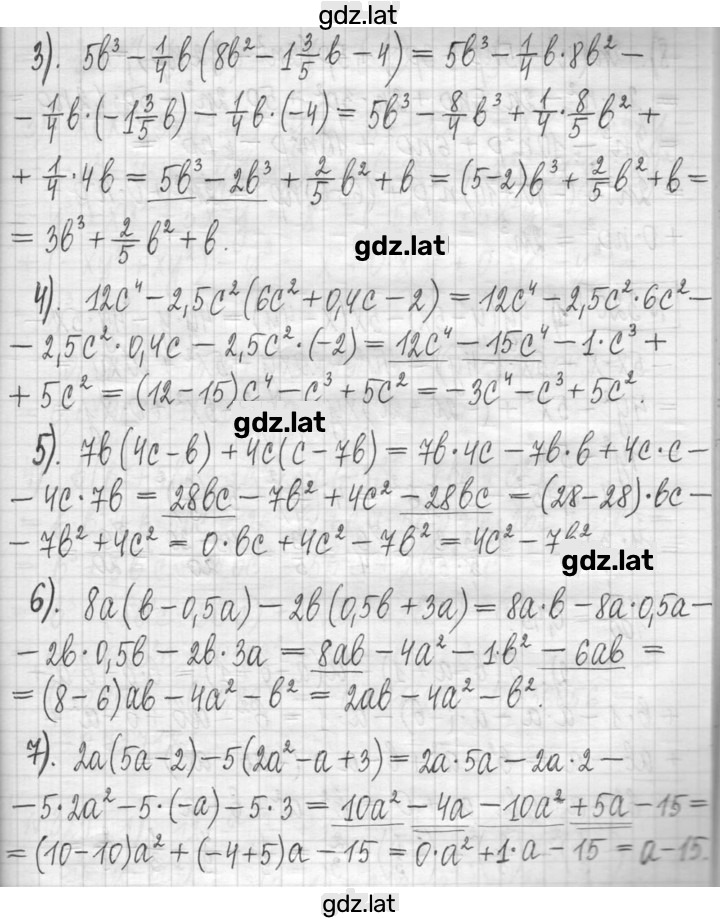 gdz.lat
3). 5b³ − 1/4 b (8b² − 1 3/5 b − 4) = 5b³ − 1/4 b · 8b² −
− 1/4 b · (−1 3/5 b) − 1/4 b · (−4) = 5b³ − 8/4 b³ + 1/4 · 8/5 b² +
+ 1/4 · 4b = 5b³ − 2b³ + 2/5 b² + b = (5−2)b³ + 2/5 b² + b =
= 3b³ + 2/5 b² + b.
gdz.lat
4). 12c⁴ − 2,5c² (6c² + 0,4c − 2) = 12c⁴ − 2,5c² · 6c² −
− 2,5c² · 0,4c − 2,5c² · (−2) = 12c⁴ − 15c⁴ − 1 · c³ +
+ 5c² = (12 − 15)c⁴ − c³ + 5c² = −3c⁴ − c³ + 5c².
gdz.lat
5). 7b (4c − b) + 4c (c − 7b) = 7b · 4c − 7b · b + 4c · c −
− 4c · 7b = 28bc − 7b² + 4c² − 28bc = (28 − 28) · bc −
− 7b² + 4c² = 0 · bc + 4c² − 7b² = 4c² − 7b²
gdz.lat
6). 8a (b − 0,5a) − 2b (0,5b + 3a) = 8a · b − 8a · 0,5a −
− 2b · 0,5b − 2b · 3a = 8ab − 4a² − 1 · b² − 6ab =
= (8 − 6)ab − 4a² − b² = 2ab − 4a² − b².
7). 2a (5a − 2) − 5 (2a² − a + 3) = 2a · 5a − 2a · 2 −
− 5 · 2a² − 5 · (−a) − 5 · 3 = 10a² − 4a − 10a² + 5a − 15 =
= (10 − 10)a² + (−4 + 5)a − 15 = 0 · a² + 1 · a − 15 = a − 15.
gdz.lat